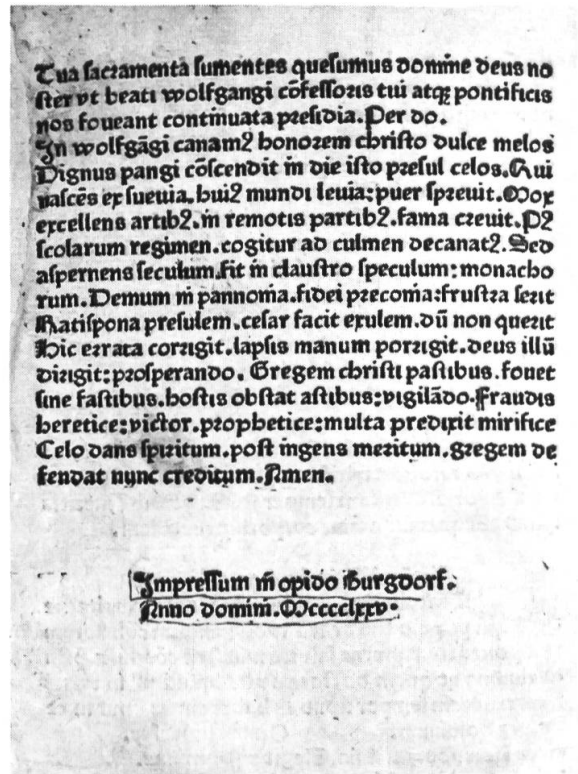 Tua sacramenta sumentes quesumus domine deus no
ster vt beati wolfgangi cōfessoris tui atqꝫ pontificis
nos foueant continuata presidia. Per do.
In wolfgāgi canamꝰ honorem christo dulce melos
Dignus pangi cōscendit in die isto presul celos. Qui
nascēs ex sueuia, huiꝰ mundi leuia: puer spreuit. Mox
excellens artibꝰ. in remotis partibꝰ. fama creuit. Pꝰ
scolarum regimen. cogitur ad culmen decanatꝰ. Sed
aspernens seculum. fit in claustro speculum: monacho
rum. Demum in pannonia. fidei preconia: frustra serit
Ratispona presulem. cesar facit exulem. dū non querit
Hic errata corrigit. lapsis manum porrigit. deus illū
dirigit: prosperando. Gregem christi pastibus. fouet
sine fastibus. hostis obstat astibus: vigilādo. Fraudis
heretice: victor. prophetice: multa predixit mirifice
Celo dans spiritum. post ingens meritum. gregem de
fendat nunc creditum. Amen.
Impressum in opido Burgdorf.
Anno domini. Mcccclxxv.